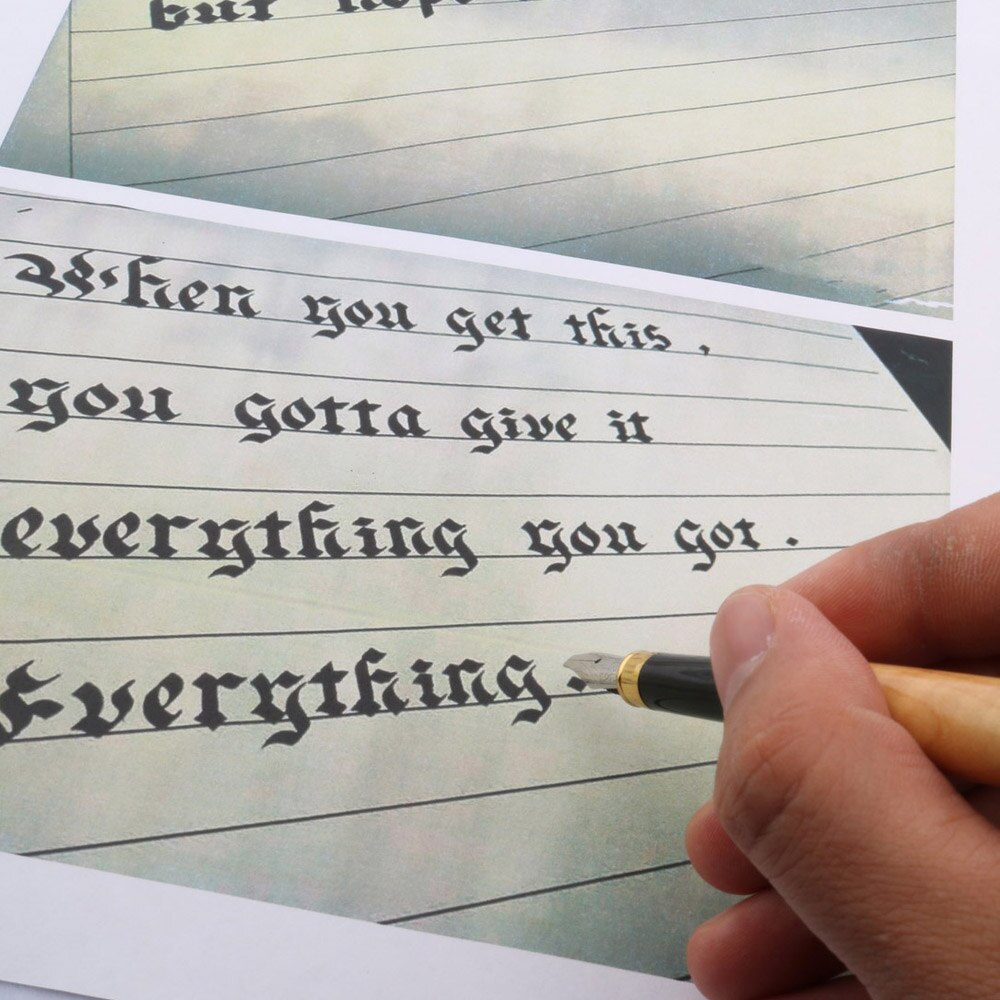 but hope
When you get this ,
you gotta give it
everything you got .
Everything .